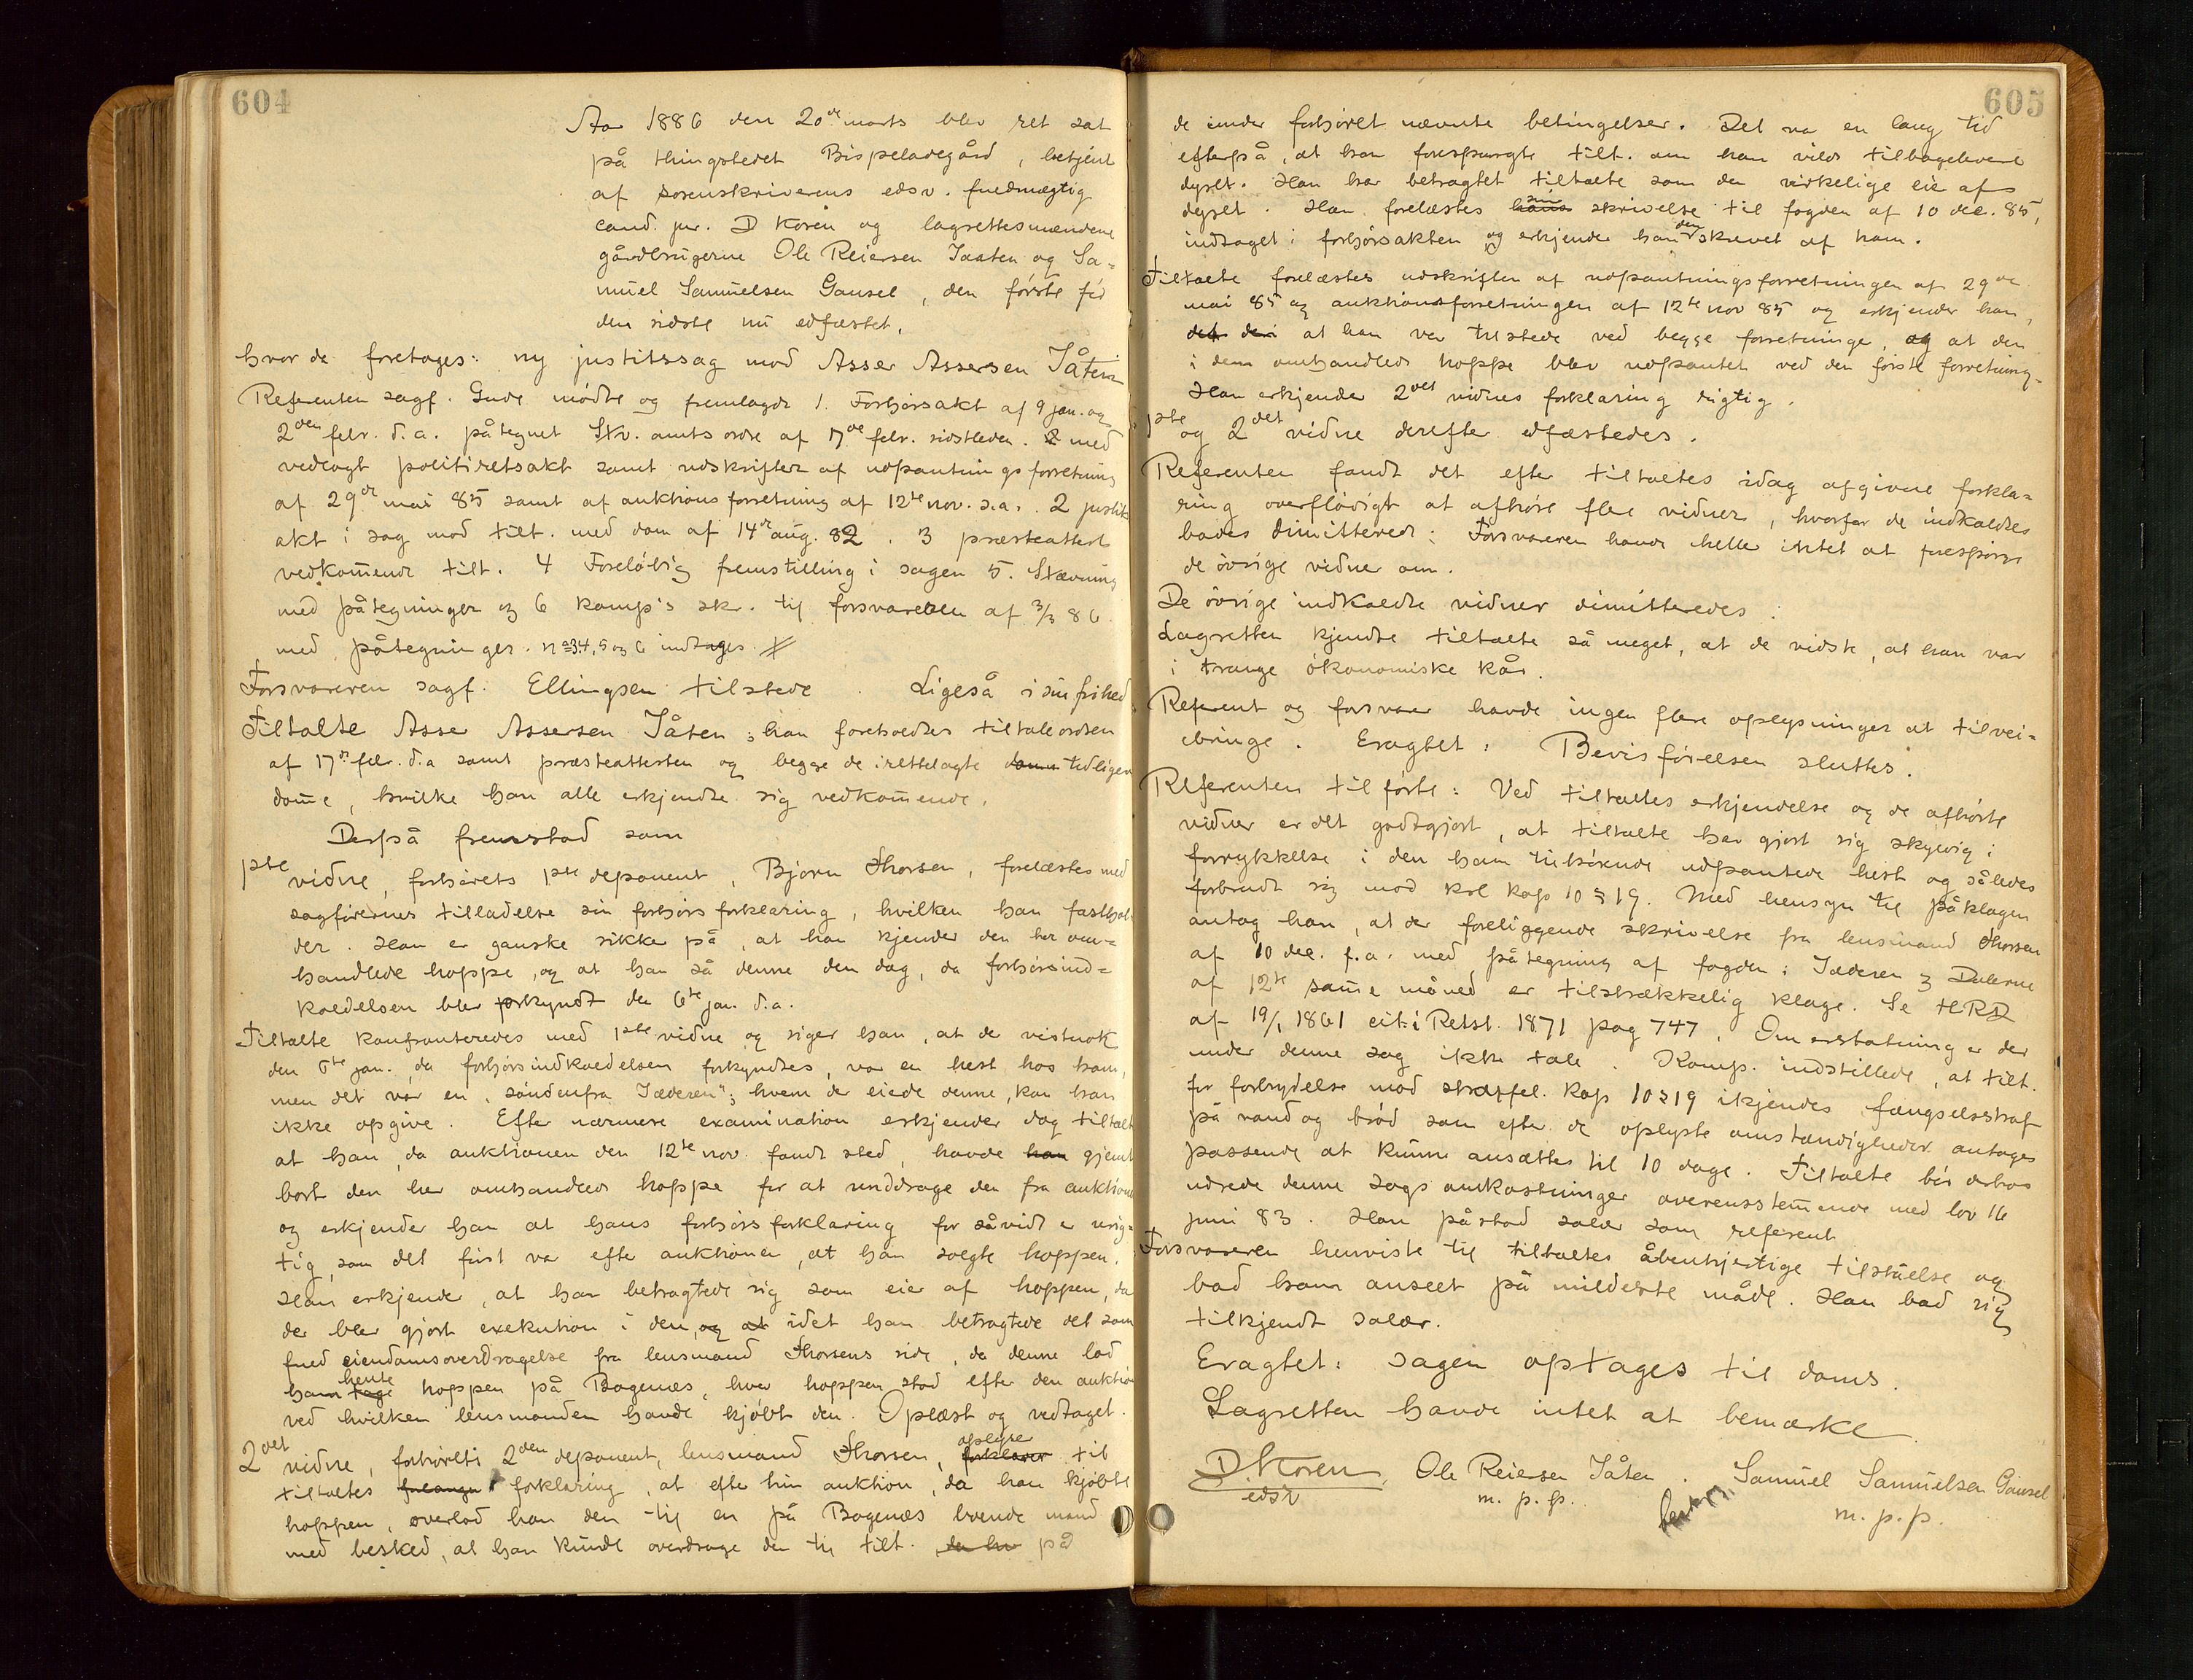 604
Aar 1886 den 20de marts blev ret sat
på thingstedet Bispeladegård, betjent
af sorenskriverens edsv. fuldmægtig
cand. jur. D Koren og lagrettesmændene
gårdbrugerne Ole Reiersen Jaaten og Sa=
muel Samuelsen Gausel, den første før
den sidste nu edfæstet,
hvor de foretoges: ny justitssag mod Asser Assersen Jåten
Referenten sagf. Gude mødte og fremlagde 1. Forhørsakt af 9 jan. og
2den febr. d.a. påtegnet Stv. amts ordre af 17de febr. sidstleden. & med
vedlagt politiretsakt samt udskrifter af udpantningsforretning
af 29de mai 85 samt af auktionsforretning af 12te nov. s.a. 2 justits
akt i sag mod tilt. med dom af 14de aug. 82. 3 præsteattest
vedkommende tilt. 4 Foreløbig fremstilling i sagen 5. Stævning
med påtegninger og 6 kamp's skr. til forsvareren af 3/3 86
med påtegninger. no 3,4,5 og 6 indtages.
Forsvareren sagf. Ellingsen tilstede. Ligeså i sin frihed
Tiltalte Asser Assersen Jåten; han foreholdtes tiltaleordren
af 17de febr. d.a samt præsteattesten og begge de irettelagte tidligere
domme, hvilke han alle erkjendte sig vedkommende.
Derpå fremstod som
1ste vidne, forhørets 1ste deponent, Bjørn Thorsen, forelæstes med
sagførernes tilladelse sin forhørsforklaring, hvilken han fasthol
der. Han er ganske sikker på, at han kjender den her om=
handlede hoppe, og at han så denne den dag, da forhørsind=
kaldelsen blev forkyndt den 6te jan. d.a.
Tiltalte konfronteredes med 1ste vidne og siger han, at de vistnok
den 6te jan. da forhørsindkaldelsen forkyndtes, var en hest hos ham,
men det var en "søndenfra Jæderen"; hvem der eiede denne, kan han
ikke opgive. Efter nærmere examination erkjender dog tiltalte
at han, da auktionen den 12te nov. fandt sted, havde han gjemt
bort den her omhandlede hoppe for at unddrage den fra auktion
og erkjender han at hans forhørsforklaring for såvidt er urig=
tig, som det først var efter auktionen, at han solgte hoppen.
Han erkjender, at han betragtede sig som eier af hoppen, da
der blev gjort exekution i den, og at idet han betragtede det som
fuld eiendomsoverdragelse fra lensmand Thorsens side, da denne lod
ham tage hente hoppen på Bogenæs, hvor hoppen stod efter den auktion
ved hvilken lensmanden havde kjøbt den. Oplæst og vedtaget.
2det vidne, forhørets 2den deponent, lensmand Thorsen, forklarer oplyser til
tiltaltes forklaring, at efter hin auktion, da han kjøbte
hoppen, overlod han den til en på Bogenæs boende mand
med besked, at han kunde overdrage den til tilt. på
605
de under forhøret nævnte betingelser. Det var en lang tid
efterpå, at han forespurgte tilt. om han vilde tilbagelevere
dyret. Han har betragtet tiltalte som den virkelige eier af
dyret. Han forelæstes hans sin skrivelse til fogden af 10 dec. 85,
indtaget i forhørsakten og erkjender han den skrevet af ham.
Tiltalte forelæstes udskriften af udpantningsforretningen af 29de
mai 85 og auktionsforretningen af 12te nov 85 og erkjender han,
det den at han var tilstede ved begge forretninger, og at den
i dem omhandlede hoppe blev udpantet ved den første forretning.
Han erkjender 2det vidnes forklaring rigtig.
1ste og 2det vidne derefter edfæstedes.
Referenten fandt det efter tiltaltes idag afgivne forkla=
ring overflødigt at afhøre flere vidner, hvorfor de indkaldte
bades dimitterede: Forsvareren havde heller intet at forespørge
de øvrige vidner om.
De øvrige indkaldte vidner dimitteredes.
Lagretten kjendte tiltalte så meget, at de vidste, at han var
i trange økonomiske kår.
Referent og forsvarer havde ingen flere oplysninger at tilvei=
ebringe. Eragtet: Bevisførelsen sluttes.
Referenten tilførte: Ved tiltaltes erkjendelse og de afhørte
vidner er det godtgjort, at tiltalte har gjort sig skyldig i
forrykkelse i den ham tilhørende udpantede hest og således
forbrudt sig mod krl kap 10 § 19. Med hensyn til påklagen
antog han, at der foreliggende skrivelse fra lensmand Thorsen
af 10 dec. f.a. med påtegning af fogden i Jæderen og Dalerne
af 12te samme måned er tilstrækkelig klage. Se HRD
af 19/1 1861 cit. i Retst. 1871 pag 747. Om erstatning er der
under denne sag ikke tale. Kamp. indstillede, at tilt.
for forbrydelse mod straffel. kap 10 § 19 ikjendes fængselsstraf
på vand og brød som efter de oplyste omstændigheder antages
passende at kunne ansættes til 10 dage. Tiltalte bør derhos
udrede denne sags omkostninger overensstemmende med lov 16
juni 83. Han påstod salær som referent
Forsvareren henviste til tiltaltes åbenhjertige tilståelse og
bad ham anseet på mildeste måde. Han bad sig
tilkjendt salær.
Eragtet: sagen optages til doms.
Lagretten havde intet at bemærke
D. Koren Ole Reiersen Jåten. Samuel Samuelsen Gausel
edsv m. p. p. m. p. p.